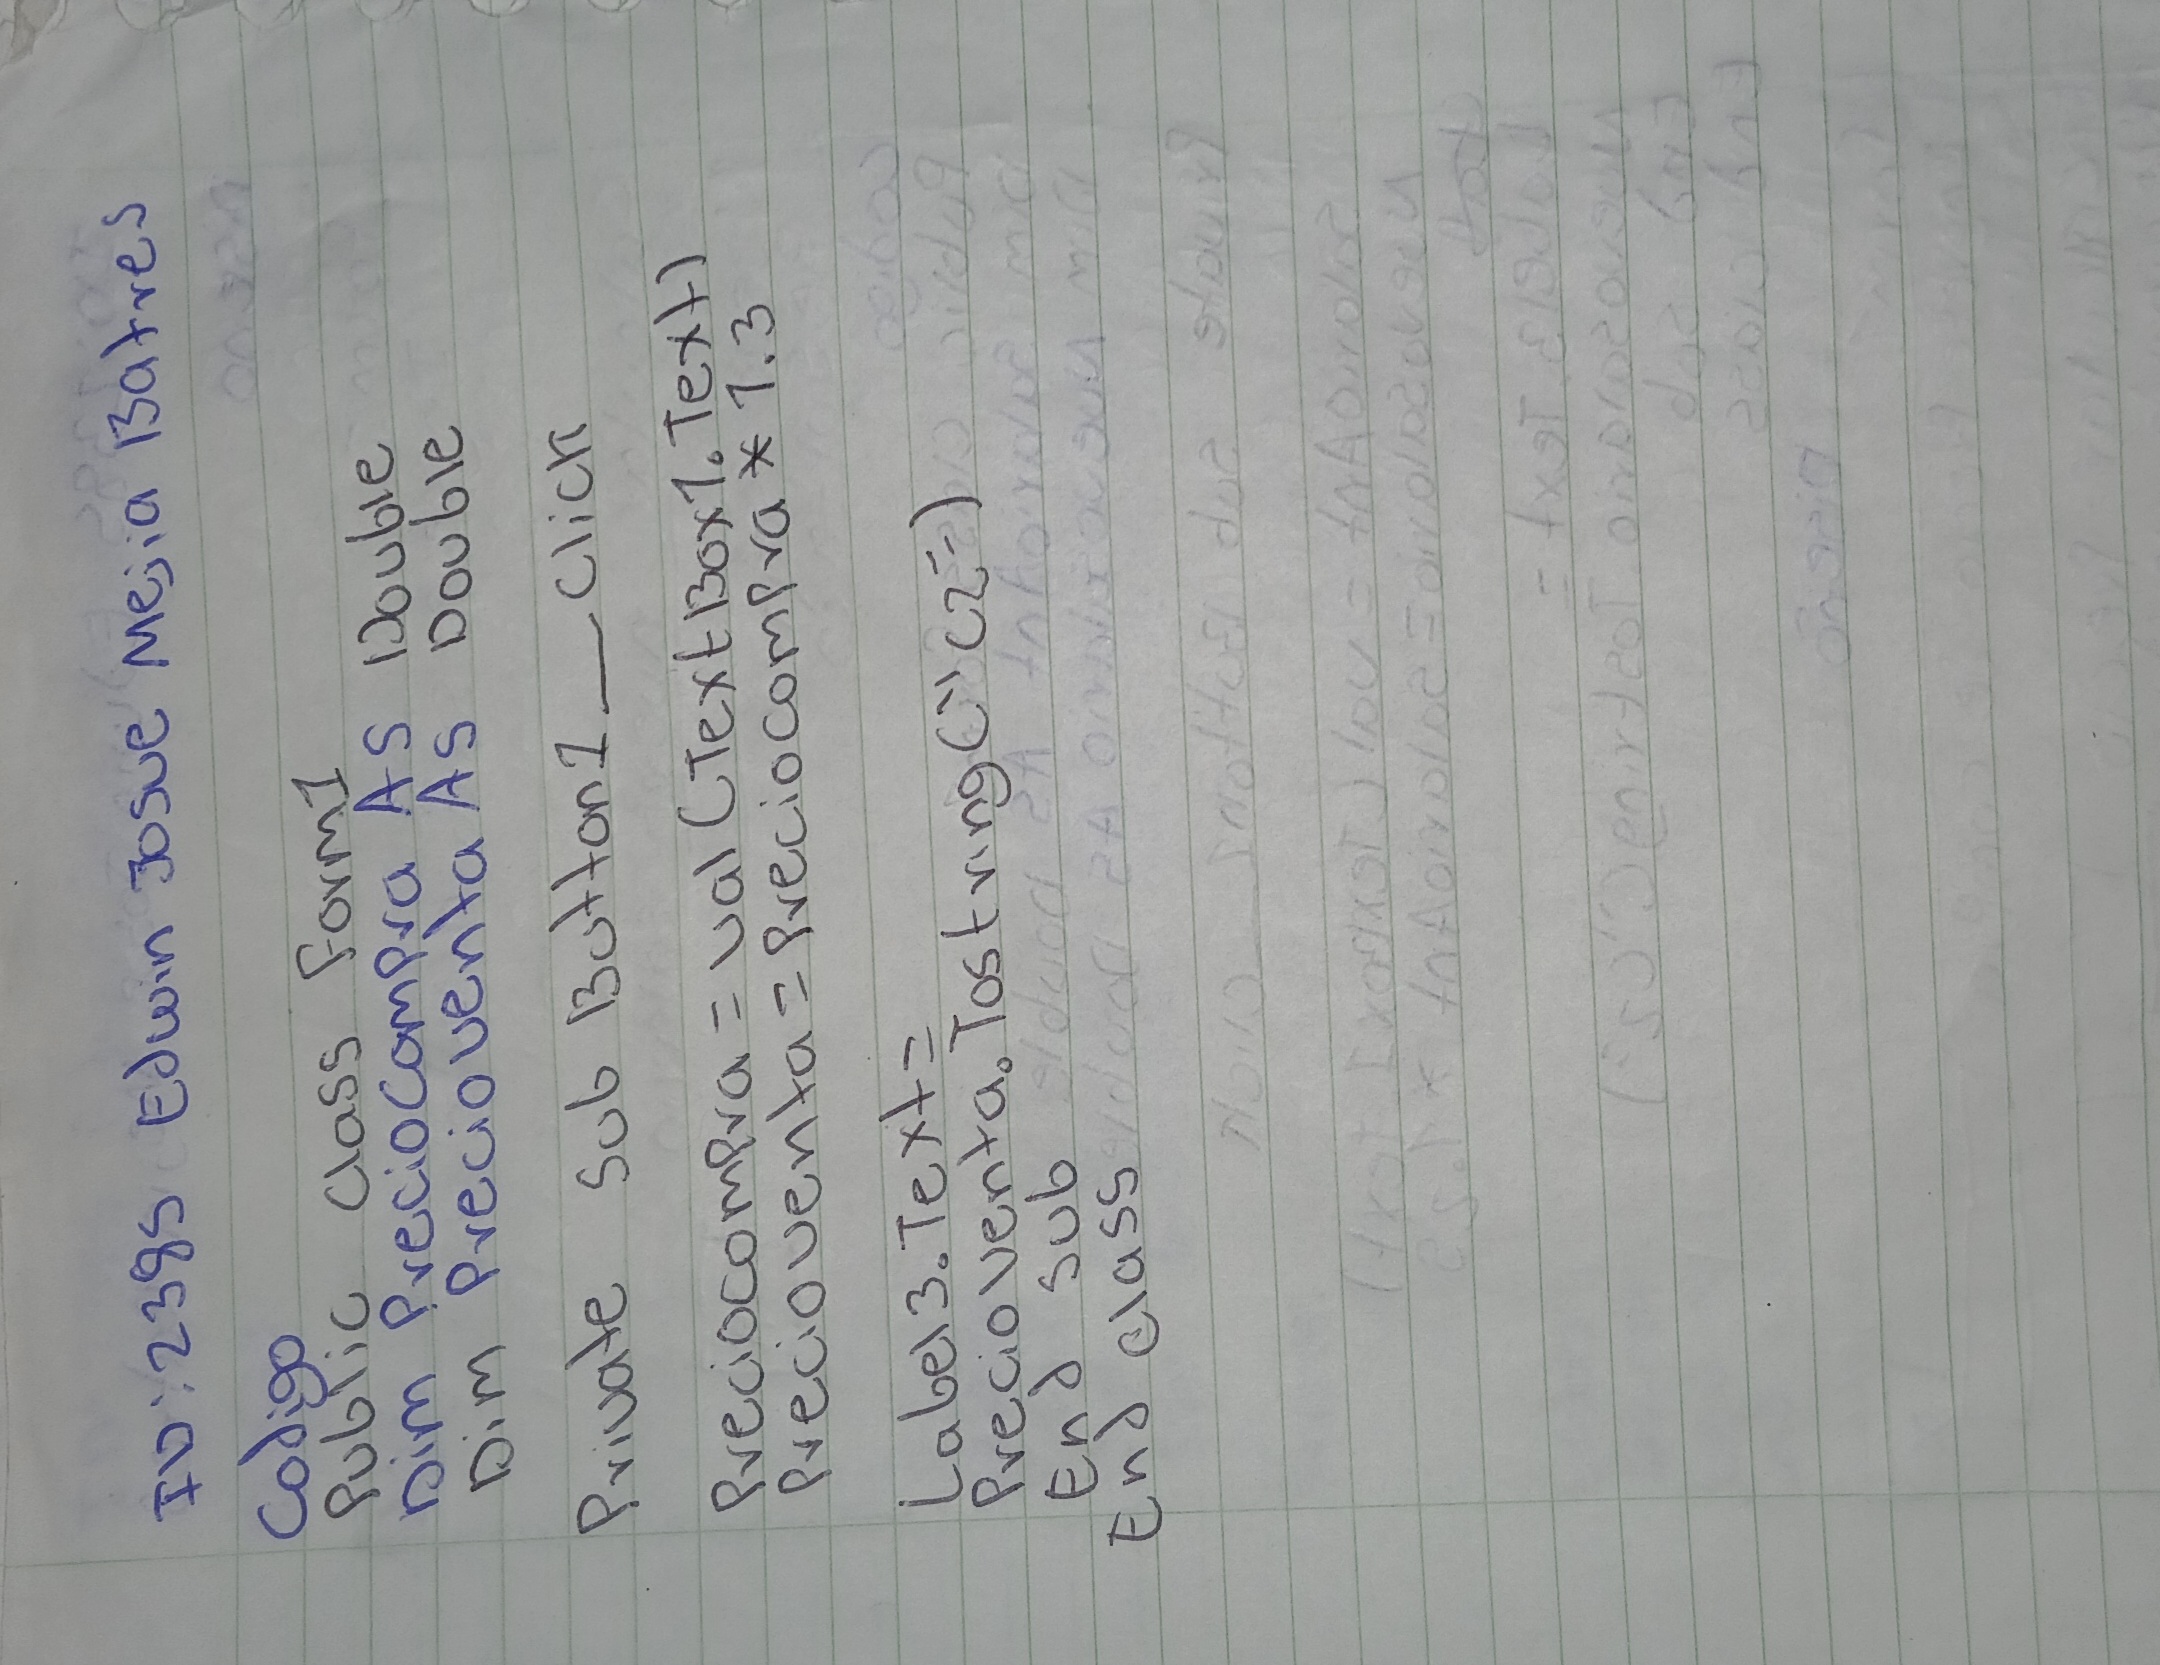 ID: 2395 Edwin Josue Mejia Batres
Codigo
Public class form1
Dim Preciocompra As Double
Dim Precioventa As Double
Private Sub Button1_Click
Preciocompra = val (TextBox1.Text)
Precioventa = Preciocompra * 1.3
Label3.Text =
Precioventa.Tostring("C2")
End Sub
End class